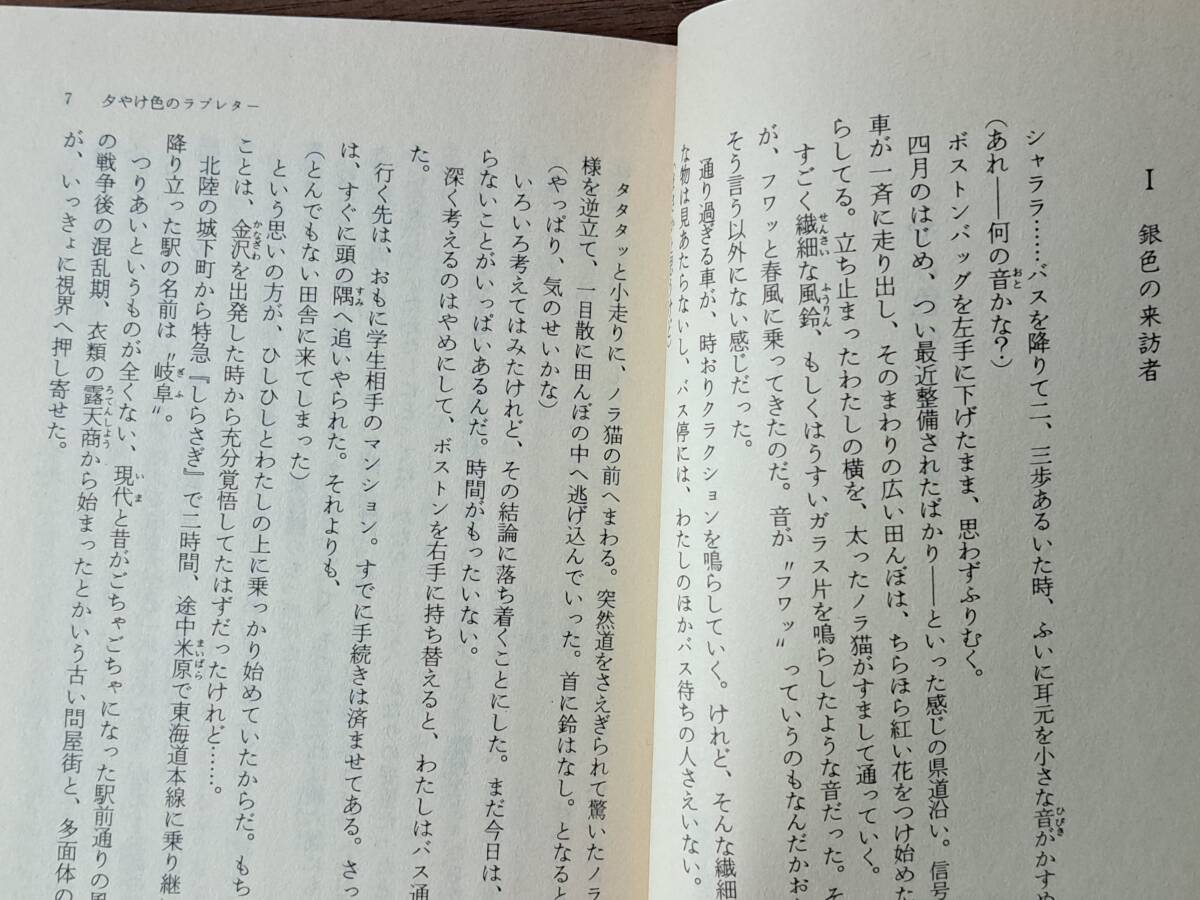 I 銀色の来訪者
シャララ……バスを降りて二、三歩あるいた時、ふいに耳元を小さな音がかすめ
(あれ——何の音かな?)
ボストンバッグを左手に下げたまま、思わずふりむく。
四月のはじめ、つい最近整備されたばかり——といった感じの県道沿い。信号
車が一斉に走り出し、そのまわりの広い田んぼは、ちらほら紅い花をつけ始めた
らしてる。立ち止まったわたしの横を、太ったノラ猫がすまして通っていく。
すごく繊細な風鈴、もしくはうすいガラス片を鳴らしたような音だった。そ
が、フワッと春風に乗ってきたのだ。音が〝フワッ〟っていうのもなんだかお
そう言う以外にない感じだった。
通り過ぎる車が、時おりクラクションを鳴らしていく。けれど、そんな繊細
な物は見あたらないし、バス停には、わたしのほかバス待ちの人さえいない。
7 夕やけ色のラブレター
タタタッと小走りに、ノラ猫の前へまわる。突然道をさえぎられて驚いたノラ
様を逆立て、一目散に田んぼの中へ逃げ込んでいった。首に鈴はなし。となると
(やっぱり、気のせいかな)
いろいろ考えてはみたけれど、その結論に落ち着くことにした。まだ今日は、
らないことがいっぱいあるんだ。時間がもったいない。
深く考えるのはやめにして、ボストンを右手に持ち替えると、わたしはバス通
た。
行く先は、おもに学生相手のマンション。すでに手続きは済ませてある。さっ
は、すぐに頭の隅へ追いやられた。それよりも、
(とんでもない田舎に来てしまった)
という思いの方が、ひしひしとわたしの上に乗っかり始めていたからだ。もち
ことは、金沢を出発した時から充分覚悟してたはずだったけれど……。
北陸の城下町から特急『しらさぎ』で二時間、途中米原で東海道本線に乗り継
降り立った駅の名前は〝岐阜〟。
つりあいというものが全くない、現代と昔がごちゃごちゃになった駅前通りの風
の戦争後の混乱期、衣類の露天商から始まったとかいう古い問屋街と、多面体の
が、いっきょに視界へ押し寄せた。